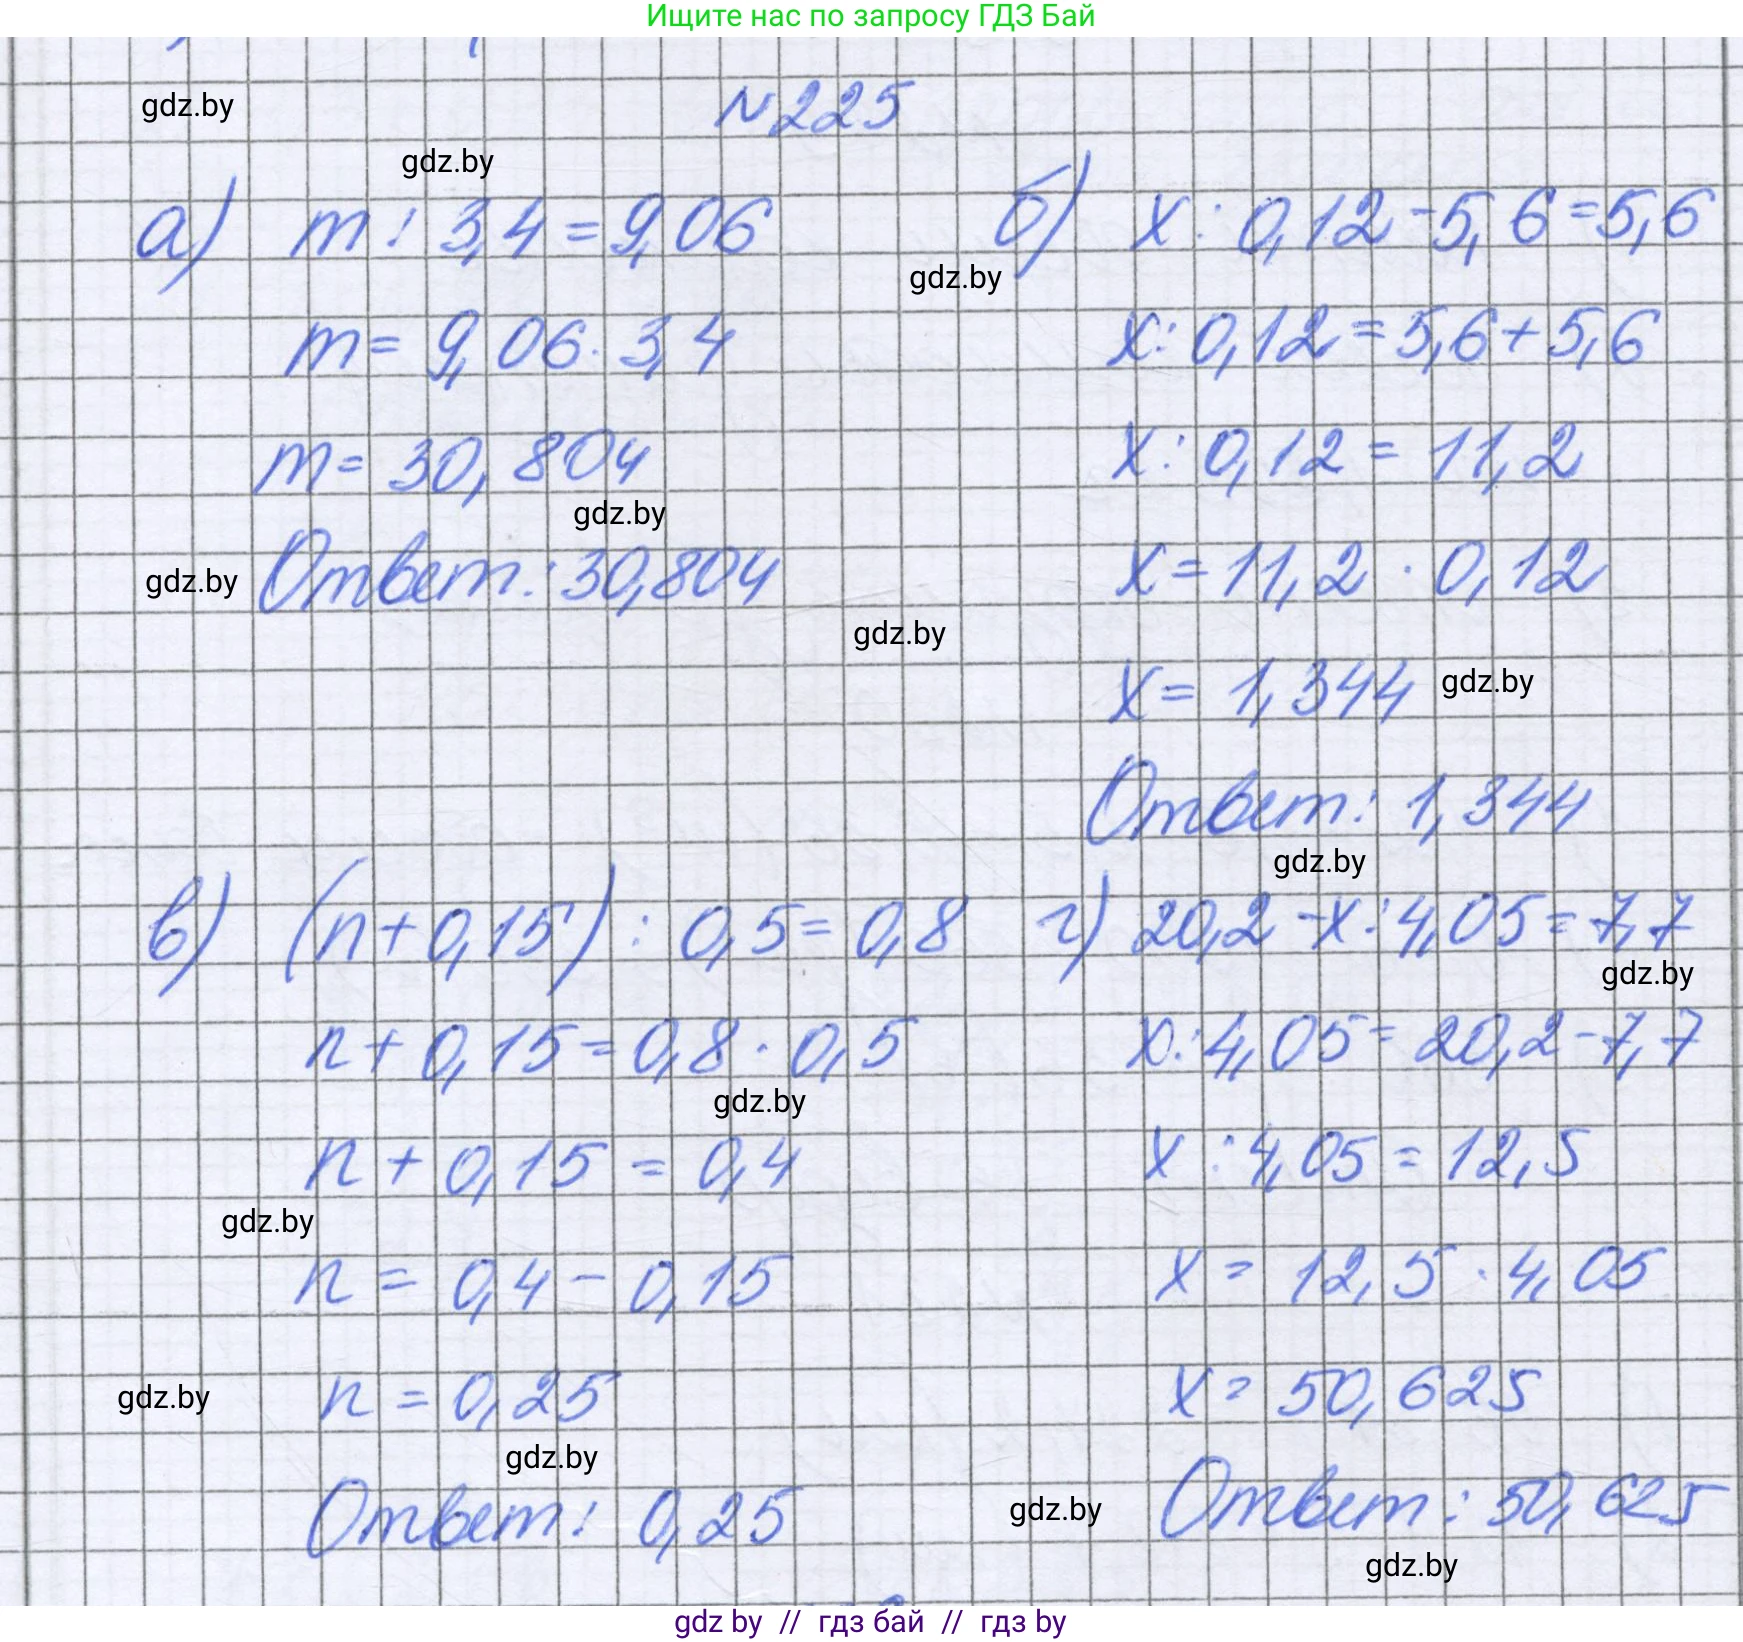 Ищите нас по запросу ГДЗ Бай
gdz.by
№225
gdz.by
а) m : 3,4 = 9,06
m = 9,06 · 3,4
m = 30,804
gdz.by
gdz.by
Ответ: 30,804
б) x : 0,12 - 5,6 = 5,6
gdz.by
x : 0,12 = 5,6 + 5,6
x : 0,12 = 11,2
x = 11,2 · 0,12
gdz.by
x = 1,344
gdz.by
Ответ: 1,344
gdz.by
в) (n + 0,15) : 0,5 = 0,8
n + 0,15 = 0,8 · 0,5
gdz.by
n + 0,15 = 0,4
gdz.by
n = 0,4 - 0,15
n = 0,25
gdz.by
gdz.by
Ответ: 0,25
г) 20,2 - x : 4,05 = 7,7
gdz.by
x : 4,05 = 20,2 - 7,7
x : 4,05 = 12,5
x = 12,5 · 4,05
x = 50,625
gdz.by
Ответ: 50,625
gdz.by
gdz by // гдз бай // гдз by